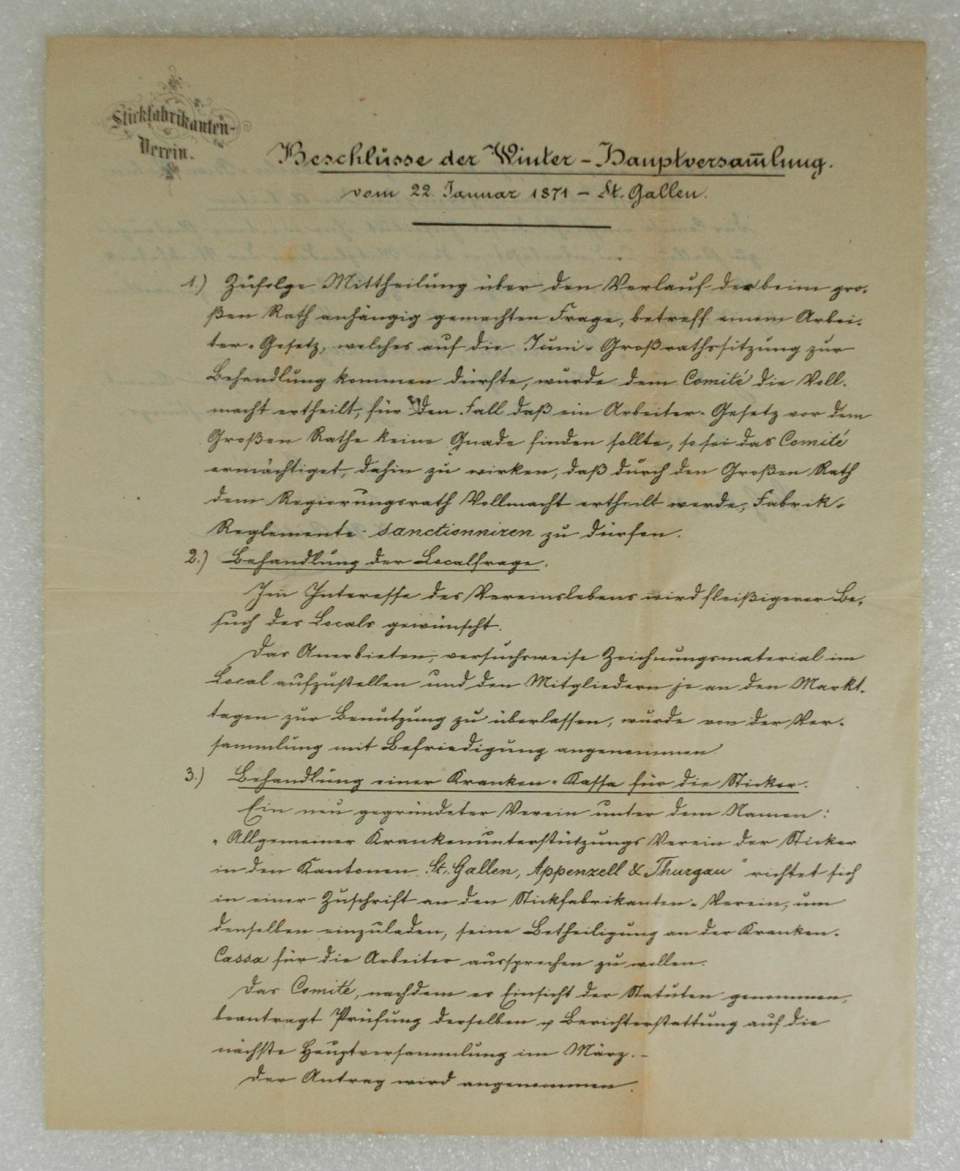 Stickfabrikanten-
Verein.
Beschlüsse der Winter-Hauptversam̅lung.
vom 22. Januar 1871 – St. Gallen.
1.) Zufolge Mittheilung über den Verlauf der beim gro-
ßen Rath anhängig gemachten Frage, betreff einem Arbei-
ter-Gesetz, welches auf die Juni-Großrathssitzung zur
Behandlung kommen dürfte, wurde dem Comité die Voll-
macht ertheilt, für den Fall daß ein Arbeiter-Gesetz vor dem
Großen Rathe keine Gnade finden sollte, so sei das Comité
ermächtiget, dahin zu wirken, daß durch den Großen Rath
dem Regierungsrath Vollmacht ertheilt werde, Fabrik-
Reglemente sanctionniren zu dürfen.
2.) Behandlung der Localfrage.
Im Interesse des Vereinslebens wird fleißigerer Be-
such des Locals gewünscht.
Das Anerbieten, versuchsweise Zeichnungsmaterial im
Local aufzustellen und den Mitgliedern je an den Markt-
tagen zur Benützung zu überlassen, wurde von der Ver-
sammlung mit Befriedigung angenommen
3.) Behandlung einer Kranken-Kassa für die Sticker.
Ein neu gegründeter Verein unter dem Namen:
„Allgemeiner Krankenunterstützungs Verein der Sticker
in den Kantonen St. Gallen, Appenzell & Thurgau" richtet sich
in einer Zuschrift an den Stickfabrikanten-Verein, um
denselben einzuladen, seine Betheiligung an der Kranken-
Cassa für die Arbeiter aussprechen zu wollen.
Das Comité, nachdem es Einsicht der Statuten genommen,
beantragt Prüfung derselben & Berichterstattung auf die
nächste Hauptversammlung im März.–
Der Antrag wird angenommen.